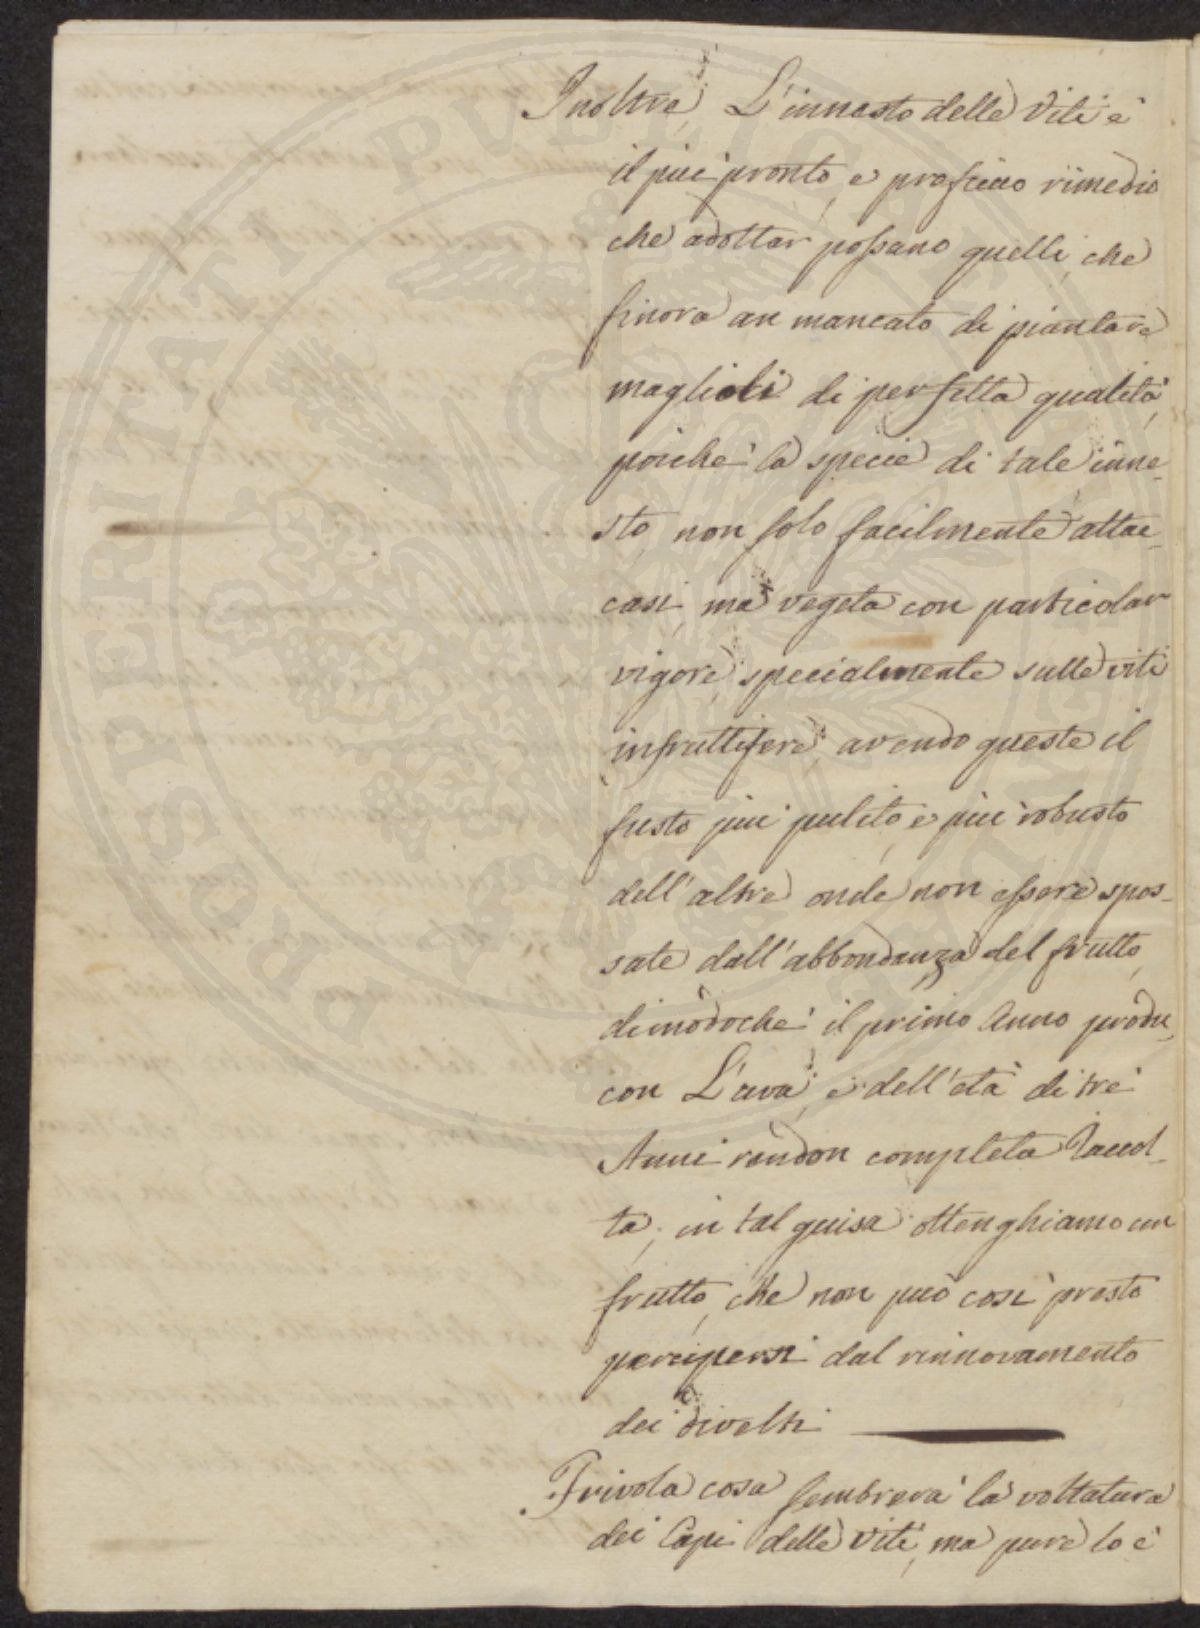 Inoltre, L'innesto delle Viti è
il piu' pronto, e proficuo rimedio
che adottar possano quelli, che
finora an mancato di piantare
maglioli di perfetta qualità,
poichè la specie di tale inne-
sto, non solo facilmente attac-
casi, ma vegeta con particolar
vigore, specialmente sulle viti
infruttifere, avendo queste il
fusto piu' pulito, e piu' robusto
dell'altre onde non essere spos-
sate dall'abbondanza del frutto,
dimodochè il primo Anno produ-
con L'uva, e dell'età di trè
Anni rendon completa Raccol-
ta, in tal guisa ottenghiamo un
frutto, che non può così presto
percipersi dal rinnovamento
dei divelti
Frivola cosa sembrerà la voltatura
dei Capi delle Viti, ma pure lo è
PROSPERITATI PVBLICAE